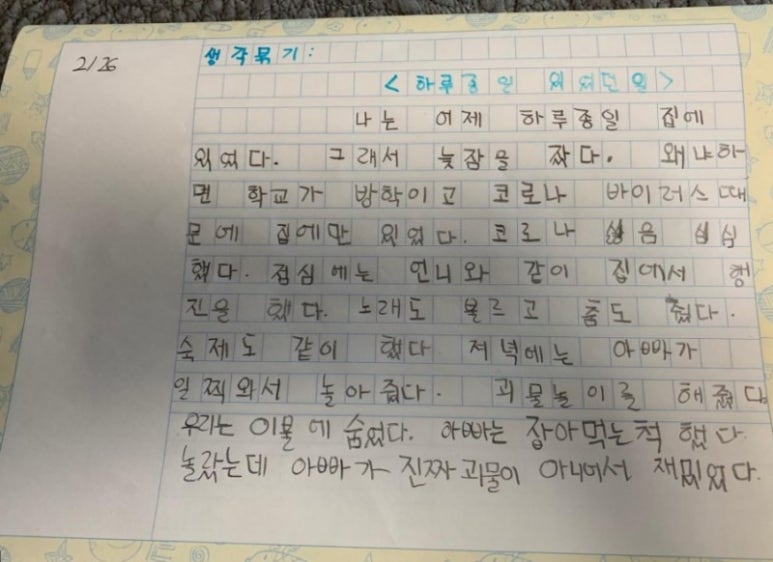 2/26
생각묶기:
<하루종일 있었던일>
나는 어제 하루종일 집에
있었다. 그래서 늦잠을 잤다. 왜냐하
면 학교가 방학이고 코로나 바이러스때
문에 집에만 있었다. 코로나 심심
했다. 점심에는 언니와 같이 집에서 행
진을 했다. 노래도 불르고 춤도 췄다.
숙제도 같이 했다 저녁에는 아빠가
일찍와서 놀아 줬다. 괴물놀이를 해줬다
우리는 이불에 숨었다. 아빠는 잡아먹는척 했다.
놀랐는데 아빠가 진짜괴물이 아니어서 재밌었다.